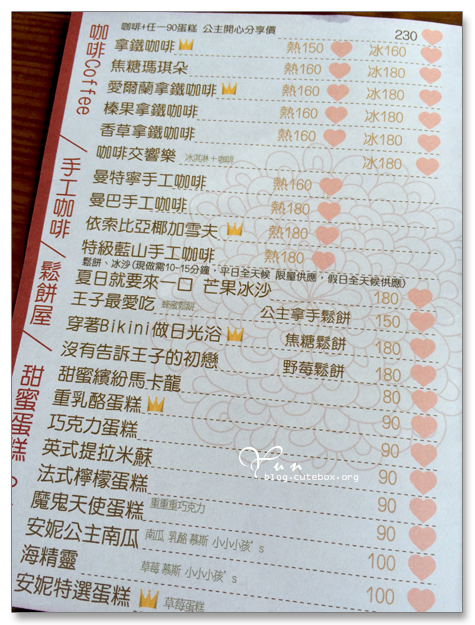 咖啡Coffee
咖啡+任一90蛋糕 公主開心分享價 230
拿鐵咖啡 熱150 冰160
焦糖瑪琪朵 熱160 冰180
愛爾蘭拿鐵咖啡 熱160 冰180
榛果拿鐵咖啡 熱160 冰180
香草拿鐵咖啡 熱160 冰180
咖啡交響樂 冰淇淋+咖啡 冰180
手工咖啡
曼特寧手工咖啡 熱160
曼巴手工咖啡 熱180
依索比亞椰加雪夫 熱180
特級藍山手工咖啡 熱180
鬆餅屋
鬆餅、冰沙(現做需10-15分鐘,平日全天候 限量供應,假日全天候供應)
夏日就要來一口 芒果冰沙 180
王子最愛吃 蜂蜜鬆餅 公主拿手鬆餅 150
穿著Bikini做日光浴 焦糖鬆餅 180
沒有告訴王子的初戀 野莓鬆餅 180
甜蜜蛋糕
甜蜜繽紛馬卡龍 80
重乳酪蛋糕 90
巧克力蛋糕 90
英式提拉米蘇 90
法式檸檬蛋糕 90
魔鬼天使蛋糕 重重重巧克力 90
安妮公主南瓜 南瓜 乳酪 慕斯 小小小孩's 100
海精靈 草莓 慕斯 小小小孩's 100
安妮特選蛋糕 草莓蛋糕
Yun
blog.cutebox.org